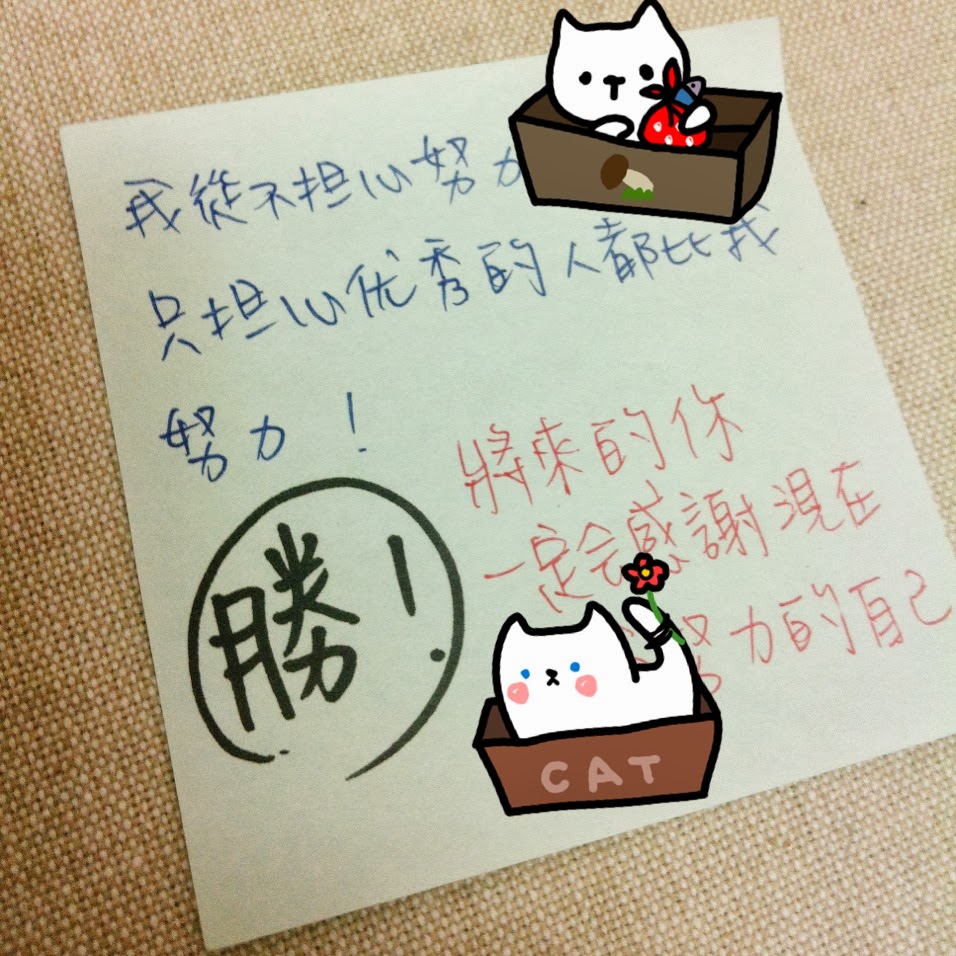 我從不担心努力
只担心优秀的人都比我
努力！
將來的你
一定会感謝現在
努力的自己
勝！
CAT